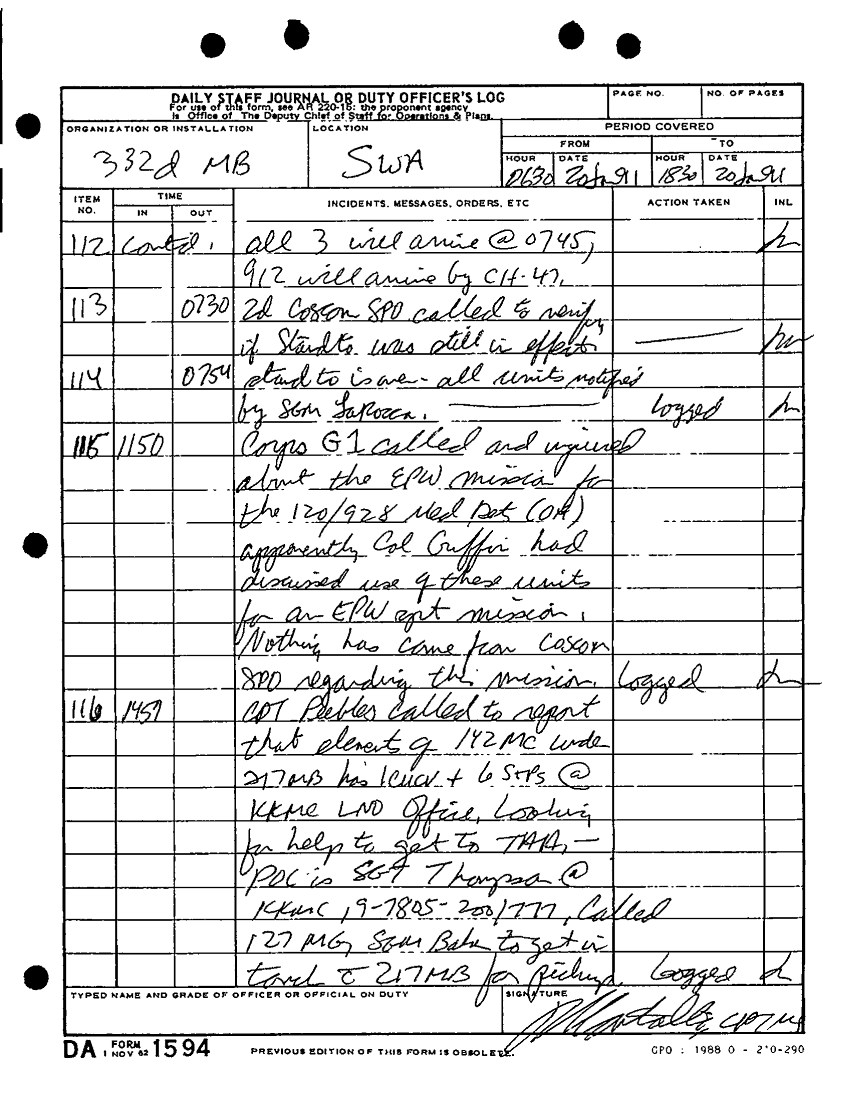 DAILY STAFF JOURNAL OR DUTY OFFICER'S LOG
For use of this form, see AR 220-15: the proponent agency
is Office of The Deputy Chief of Staff for Operations & Plans.
PAGE NO.
NO. OF PAGES
ORGANIZATION OR INSTALLATION
332d MB
LOCATION
SWA
PERIOD COVERED
FROM
TO
HOUR
0630
DATE
20 Jan 91
HOUR
1830
DATE
20 Jan 91
ITEM NO.
TIME
IN
OUT
INCIDENTS, MESSAGES, ORDERS, ETC
ACTION TAKEN
INL
112 Cont'd. all 3 will arrive @ 0745,
912 will arrive by CH-47.
113 0730 2d Coscom SPO called to verify
if Stand to was still in effect.
114 0754 stand to is over - all units notified
by SGM LaRocca. Logged
115 1150 Corps G1 called and inquired
about the EPW mission for
the 120/928 Med Det (OA)
apparently Col Griffin had
discussed use of these units
for an EPW spt mission.
Nothing has come from Coscom
SPO regarding this mission. Logged
116 1457 CPT Peebles called to report
that elements of 142 MC under
217 MB has 1 CUCV + 6 5 tPs @
KKMC LNO Office, Looking
for help to get to TAA, -
POC is SGT Thompson @
KKMC, 9-7805-200/777, Called
127 MG, SGM to get in
touch c 217 MB for pickup. Logged
TYPED NAME AND GRADE OF OFFICER OR OFFICIAL ON DUTY
SIGNATURE
DA FORM 1 NOV 62 1594
PREVIOUS EDITION OF THIS FORM IS OBSOLETE.
GPO : 1988 O - 210-290